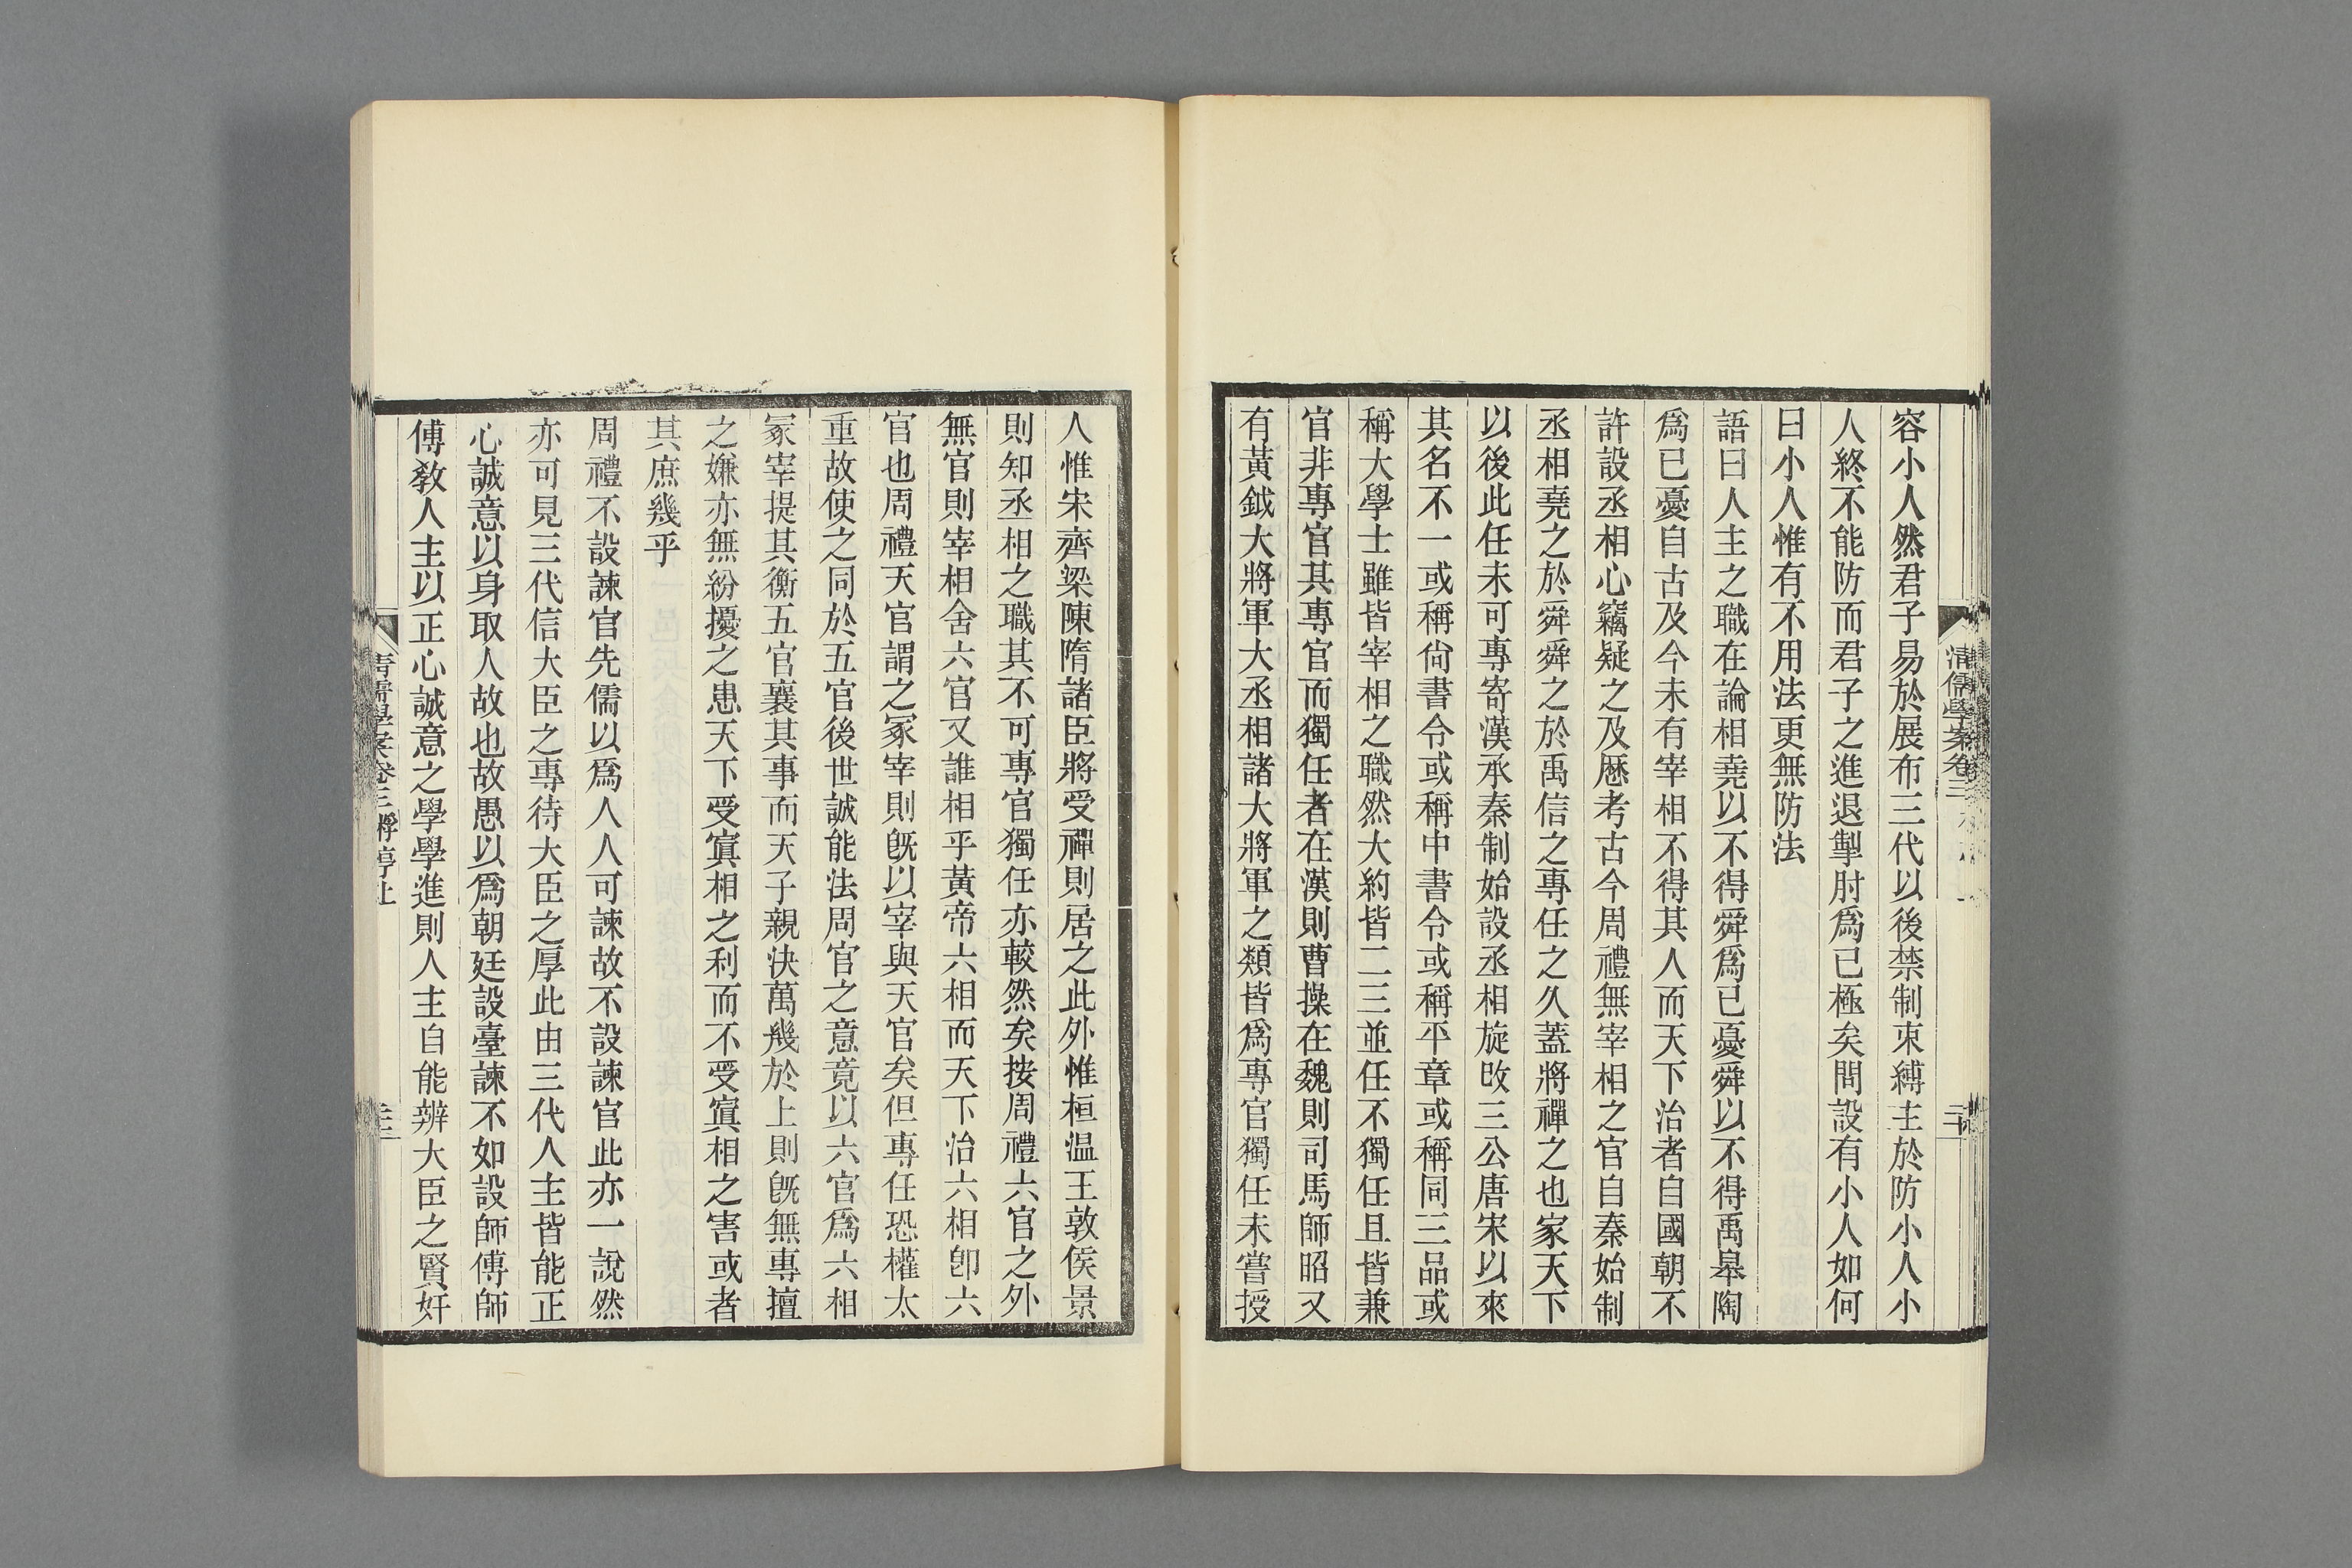 容小人然君子易於展布三代以後禁制束縛主於防小人小
人終不能防而君子之進退掣肘爲已極矣問設有小人如何
曰小人惟有不用法更無防法
語曰人主之職在論相堯以不得舜爲已憂舜以不得禹皋陶
爲已憂自古及今未有宰相不得其人而天下治者自國朝不
許設丞相心竊疑之及歷考古今周禮無宰相之官自秦始制
丞相堯之於舜舜之於禹信之專任之久蓋將禪之也家天下
以後此任未可專寄漢承秦制始設丞相旋改三公唐宋以來
其名不一或稱尙書令或稱中書令或稱平章或稱同三品或
稱大學士雖皆宰相之職然大約皆二三並任不獨任且皆兼
官非專官其專官而獨任者在漢則曹操在魏則司馬師昭又
有黃鉞大將軍大丞相諸大將軍之類皆爲專官獨任未嘗授
清儒學案卷三
人惟宋齊梁陳隋諸臣將受禪則居之此外惟桓温王敦侯景
則知丞相之職其不可專官獨任亦較然矣按周禮六官之外
無官則宰相舍六官又誰相乎黃帝六相而天下治六相卽六
官也周禮天官謂之冢宰則旣以宰與天官矣但專任恐權太
重故使之同於五官後世誠能法周官之意竟以六官爲六相
冢宰提其衡五官襄其事而天子親決萬幾於上則旣無專擅
之嫌亦無紛擾之患天下受寘相之利而不受寘相之害或者
其庶幾乎
周禮不設諫官先儒以爲人人可諫故不設諫官此亦一說然
亦可見三代信大臣之專待大臣之厚此由三代人主皆能正
心誠意以身取人故也故愚以爲朝廷設臺諫不如設師傅師
傅敎人主以正心誠意之學學進則人主自能辨大臣之賢奸
清儒學案卷三 桴亭上